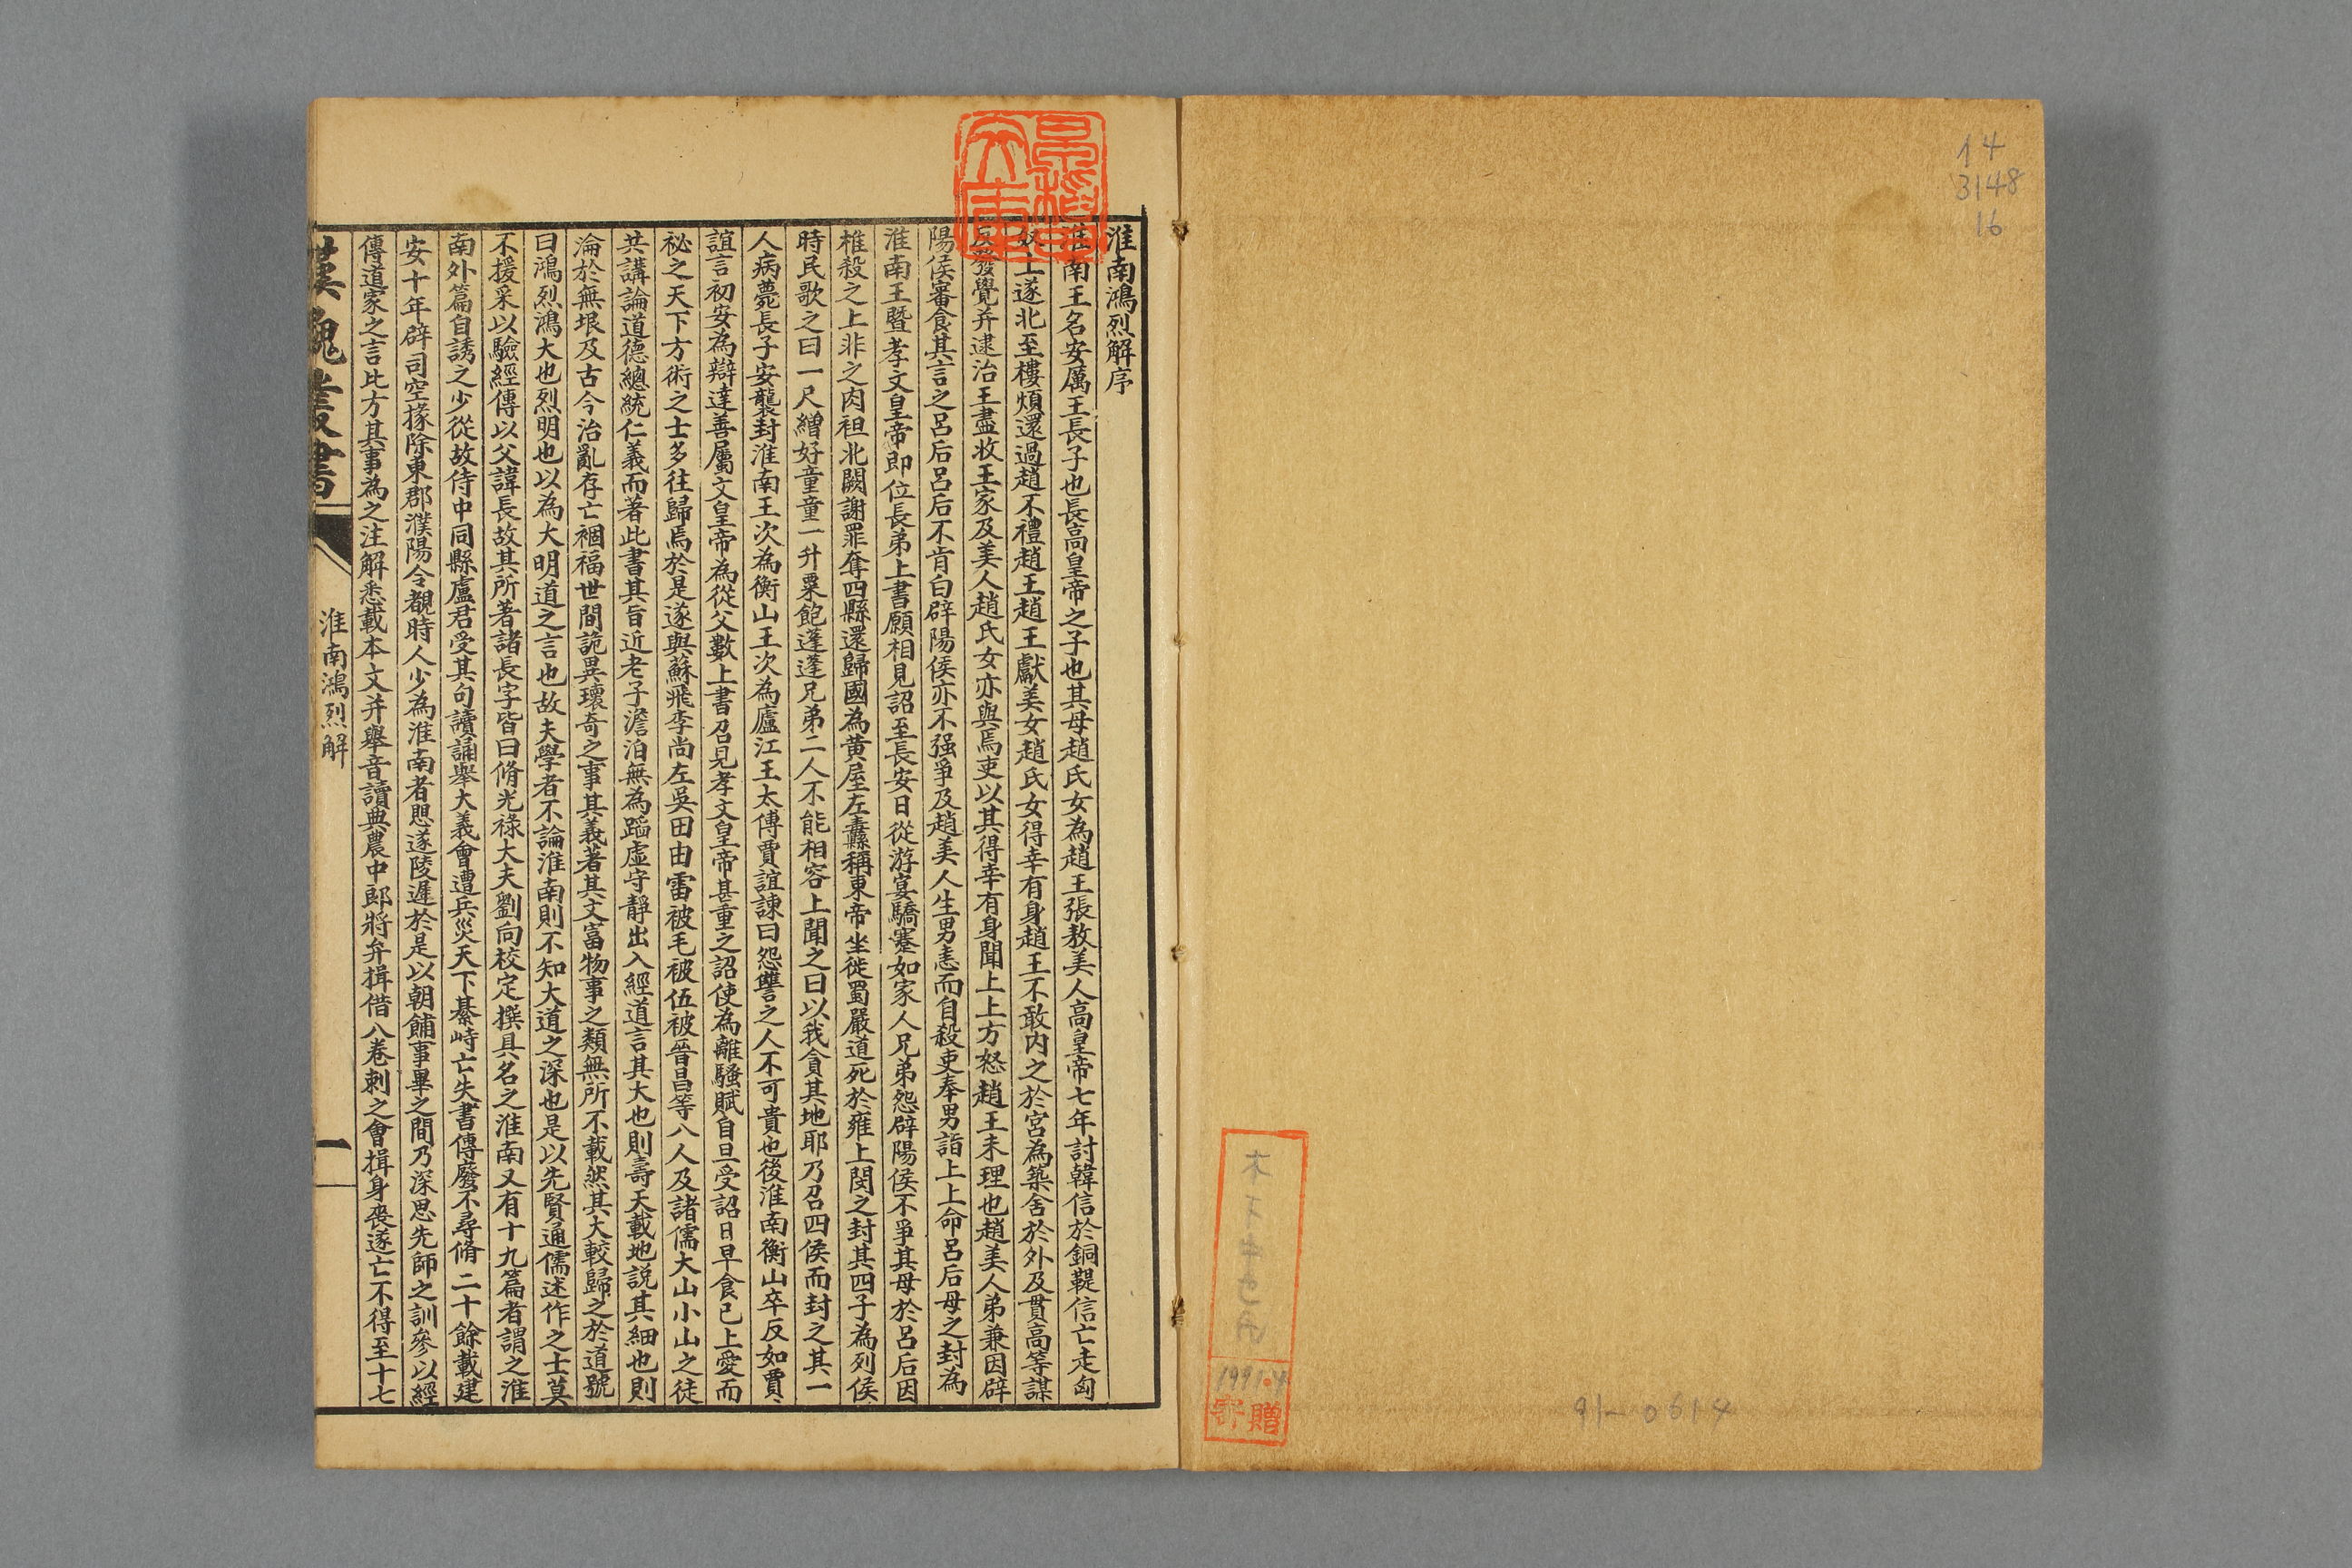 14
3148
16
1991.4
寄贈
91-0614
淮南鴻烈解序
淮南王名安厲王長子也長高皇帝之子也其母趙氏女為趙王張敖美人高皇帝七年討韓信於銅鞮信亡走匈
奴上遂北至樓煩還過趙不禮趙王趙王獻美女趙氏女得幸有身趙王不敢內之於宮為築舍於外及貫高等謀
反發覺并逮治王盡收王家及美人趙氏女亦與焉吏以其得幸有身聞上上方怒趙王未理也趙美人弟兼因辟
陽侯審食其言之呂后呂后不肯白辟陽侯亦不强爭及趙美人生男恚而自殺吏奉男詣上上命呂后母之封為
淮南王暨孝文皇帝即位長弟上書願相見詔至長安日從游宴驕蹇如家人兄弟怨辟陽侯不爭其母於呂后因
椎殺之上非之肉袒北闕謝罪奪四縣還歸國為黄屋左纛稱東帝坐徙蜀嚴道死於雍上閔之封其四子為列侯
時民歌之曰一尺繒好童童一升粟飽蓬蓬兄弟二人不能相容上聞之曰以我貪其地耶乃召四侯而封之其一
人病薨長子安襲封淮南王次為衡山王次為廬江王太傅賈誼諫曰怨讐之人不可貴也後淮南衡山卒反如賈
誼言初安為辯達善屬文皇帝為從父數上書召見孝文皇帝甚重之詔使為離騷賦自旦受詔日早食已上愛而
祕之天下方術之士多往歸焉於是遂與蘇飛李尚左吳田由雷被毛被伍被晉昌等八人及諸儒大山小山之徒
共講論道德總統仁義而著此書其旨近老子澹泊無為蹈虛守靜出入經道言其大也則壽天載地說其細也則
淪於無垠及古今治亂存亡禍福世間詭異瓌奇之事其義著其文富物事之類無所不載然其大較歸之於道號
曰鴻烈鴻大也烈明也以為大明道之言也故夫學者不論淮南則不知大道之深也是以先賢通儒述作之士莫
不援采以驗經傳以父諱長故其所著諸長字皆曰脩光祿大夫劉向校定撰具名之淮南又有十九篇者謂之淮
南外篇自誘之少從故侍中同縣盧君受其句讀誦舉大義會遭兵災天下棊峙亡失書傳廢不尋脩二十餘載建
安十年辟司空掾除東郡濮陽令覩時人少為淮南者愳遂陵遲於是以朝餔事畢之間乃深思先師之訓參以經
傳道家之言比方其事為之注解悉載本文并舉音讀典農中郎將弁揖借八卷刺之會揖身喪遂亡不得至十七
漢魏叢書
淮南鴻烈解
一